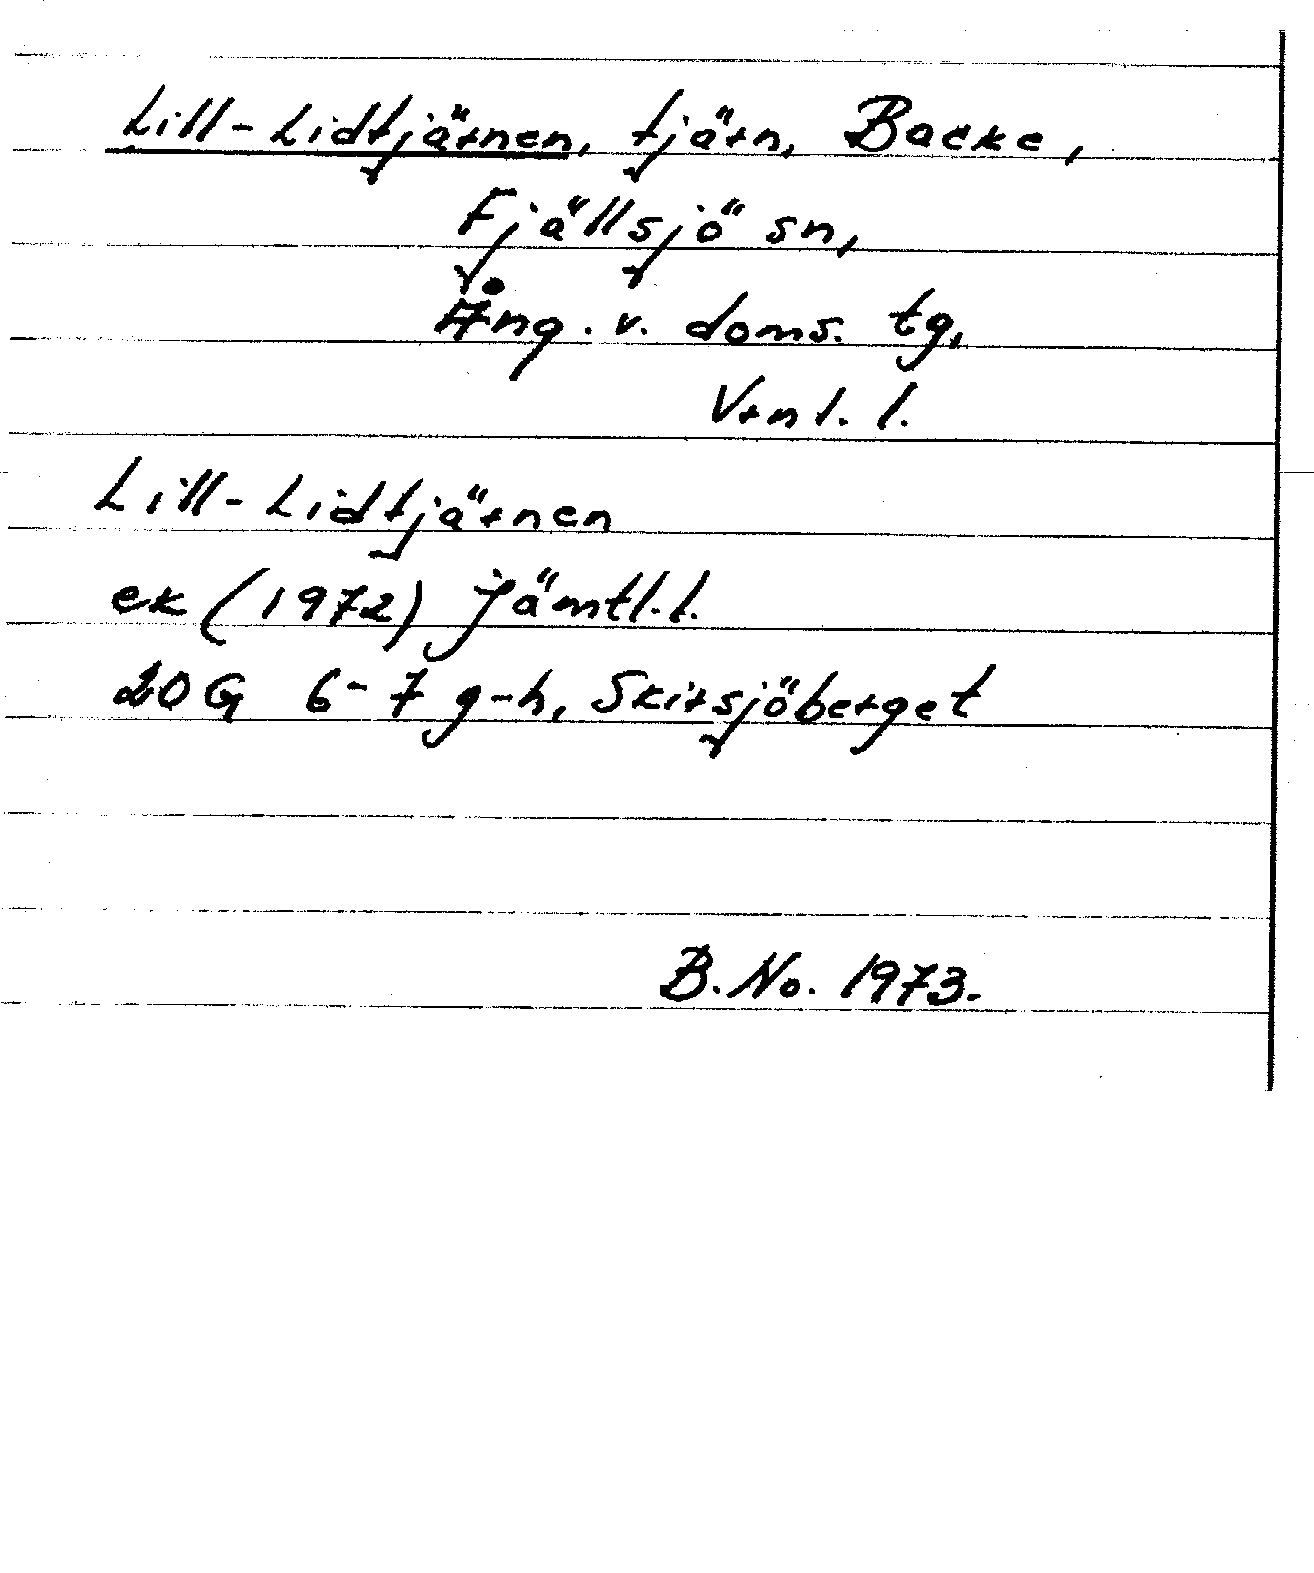 Lill-Lidtjärnen, tjärn, Backe,
Fjällsjö sn,
Ång. v. doms. tg,
Vrnl. l.
Lill-Lidtjärnen
ek (1972) Jämtl. l.
20 G 6-7 g-h, Skirsjöberget
B. No. 1973.